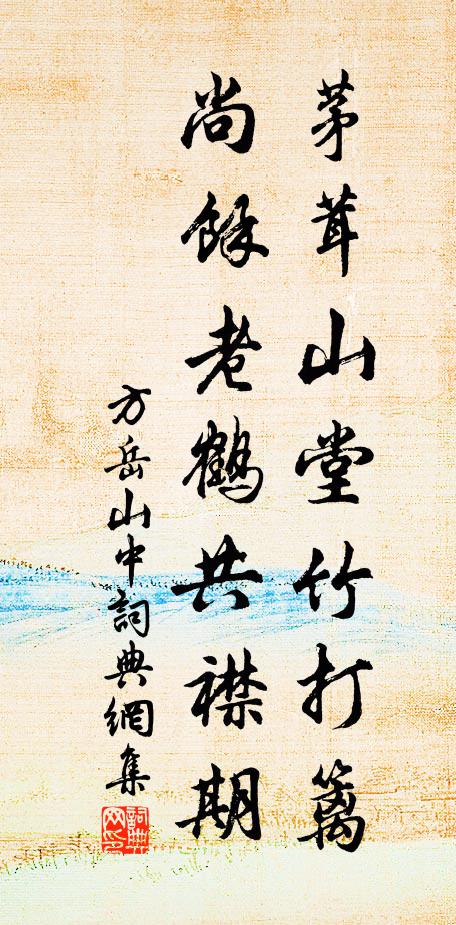 茅茸山堂竹打篱
尚餘老鶴共襟期
方岳山中詞典網集
詞典网印